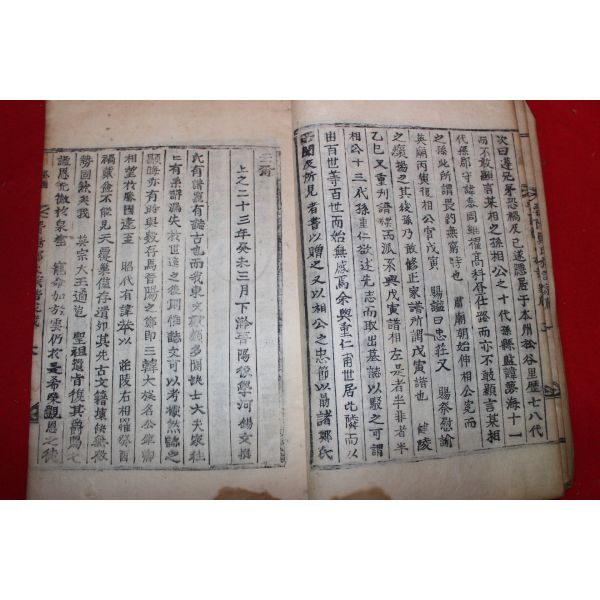 次曰遵兄弟恐禍及己遂隱居于本州松谷里歷七八代
而不敢顯言某相之孫相公之十代孫縣監諱夢海十一
代孫郡守諱岡維擢高科登仕路而亦不敢顯言某相
之孫此所謂畏約無窮時也 肅廟朝始伸相公冤而
英廟丙寅復相公官戊寅 賜諡曰忠莊又 賜祭慰諭
之褒揚之其後孫乃敢修正家譜所謂戊寅譜也 健陵
乙巳又重刊譜牒而派系與戊寅譜相左是者半非者半
相公十三代孫重仁欲述先志而取出墓誌以駁之可謂
由百世等百世而始無憾焉余與重仁甫世居此隣而以
聞及所見者書以贈之又以相公之忠節以勗諸鄭氏
云爾
上之二十三年癸未三月下澣晉陽後學河錫文撰
氏有譜蓋有誌古也而我東文獻頗多闕缺士大夫家往
往有系辭漏失故世遠之後則惟誌文可以考據然誌之
顯晦亦有時與數存焉晉陽之鄭卽三韓大族名公雄卿
相望於勝國逮至 昭代有諱苯以 莊陵右相罹癸酉
禍不能見天覆巢僅存遺卵其先古文籍壞缺散微
勢固然矣我 英宗大王適追 聖祖遺旨復其爵賜之
諡恩光徹於泉壤 寵命加於雲仍於是希榮觀恩之徒